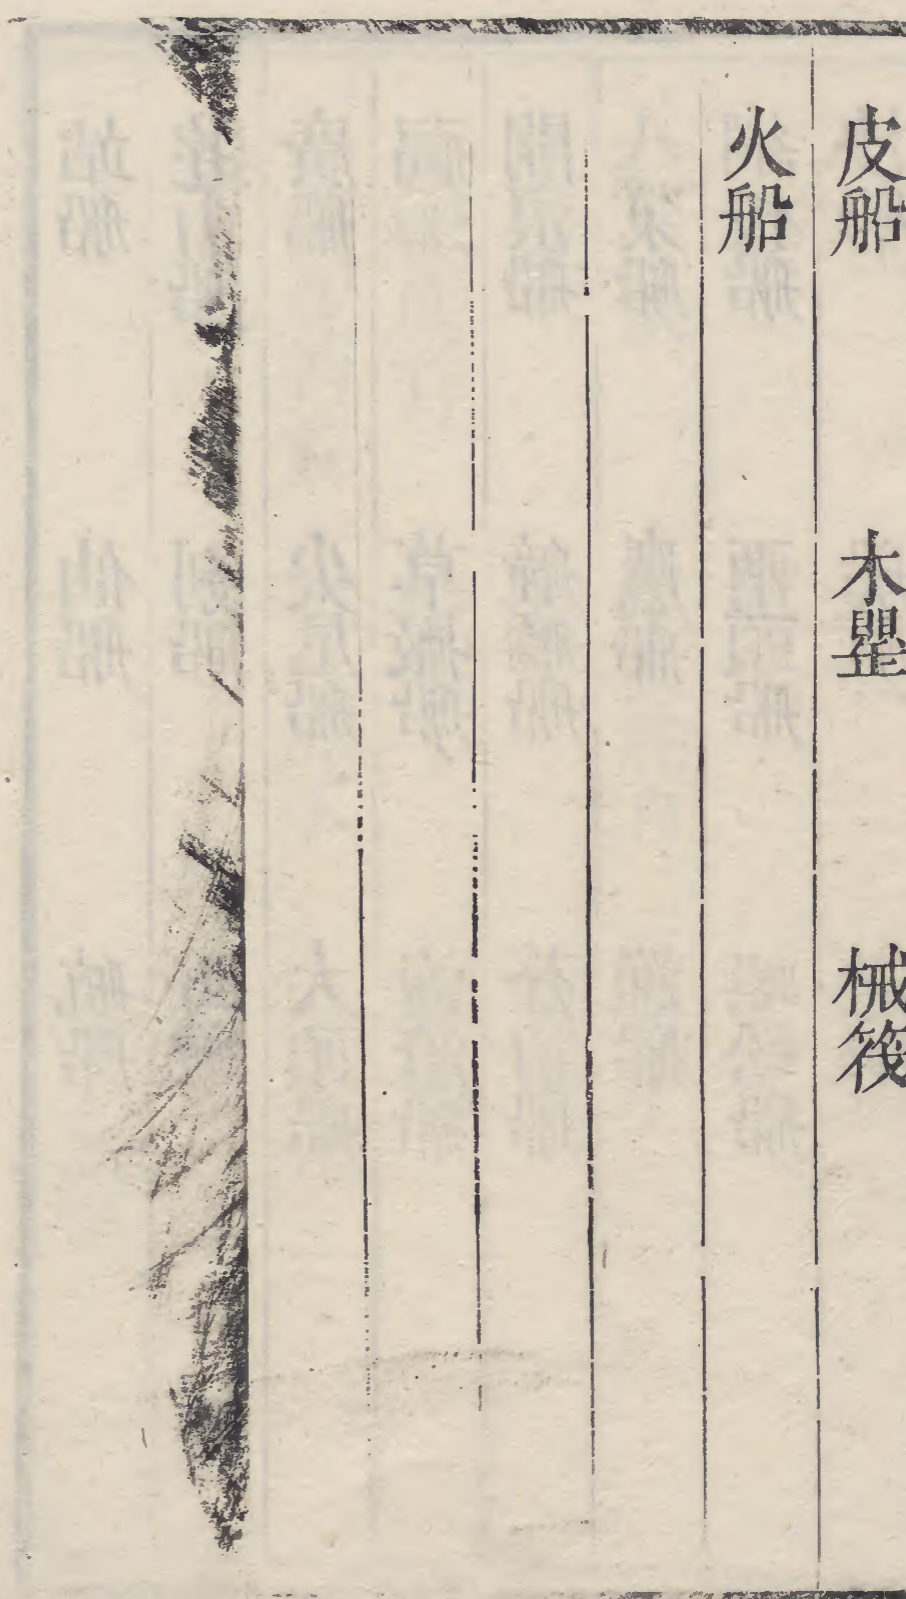 皮船　木罌　械筏
火船